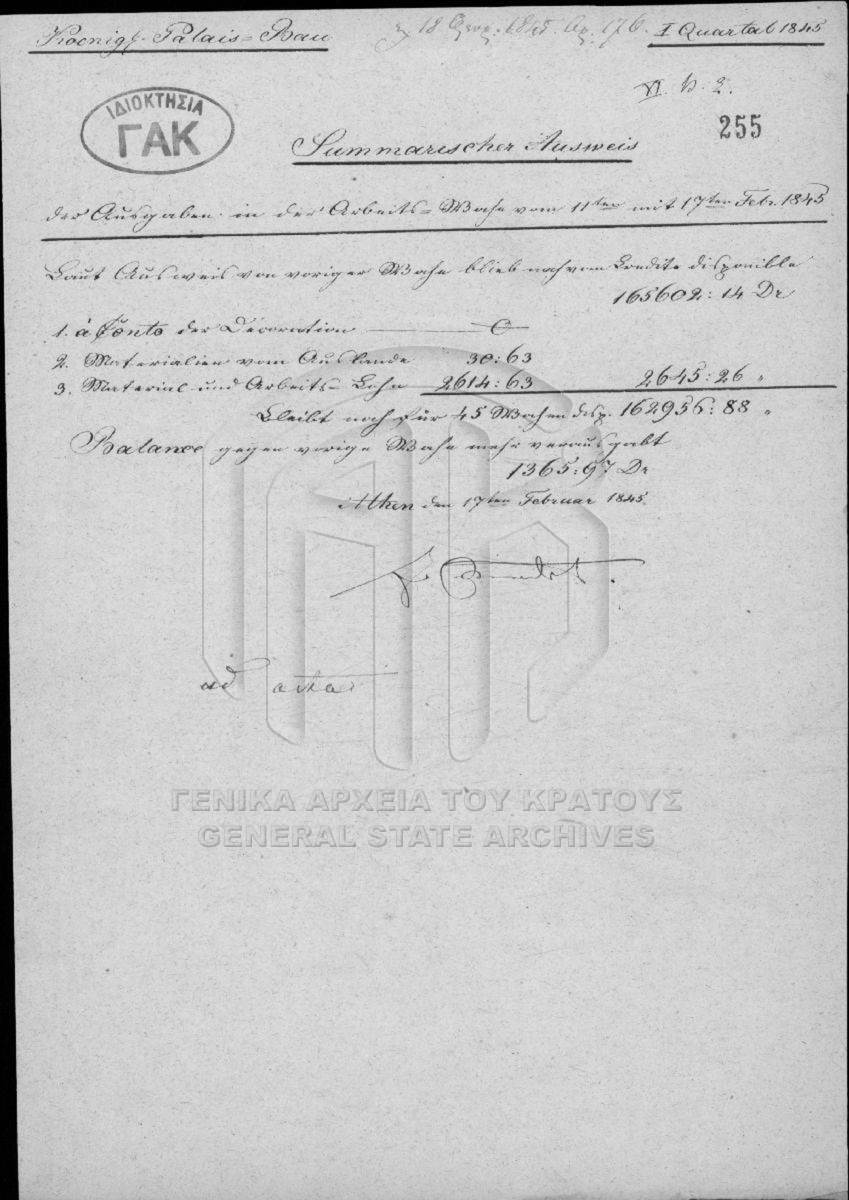 Koenigl. Palais-Bau
18 Φευρ: 1845. Αρ. 176.
I Quartal 1845
VI. b. 2.
255
ΙΔΙΟΚΤΗΣΙΑ
ΓΑΚ
Summarischer Ausweis
der Ausgaben in der Arbeits-Woche vom 11ten mit 17ten Febr. 1845
Laut Ausweis von voriger Woche blieb noch vom Credite disponible
165602: 14 Dr
1. à Conto der Decoration — 0 —
2. Materialien vom Auslande 30: 63
3. Material und Arbeits-Lohn 2614: 63 2645: 26 "
Bleibt noch für 45 Wochen disp. 162956: 88 "
Balance gegen vorige Woche mehr verausgabt
1365: 97 Dr
Athen den 17ten Februar 1845.
ad acta
ΓΕΝΙΚΑ ΑΡΧΕΙΑ ΤΟΥ ΚΡΑΤΟΥΣ
GENERAL STATE ARCHIVES